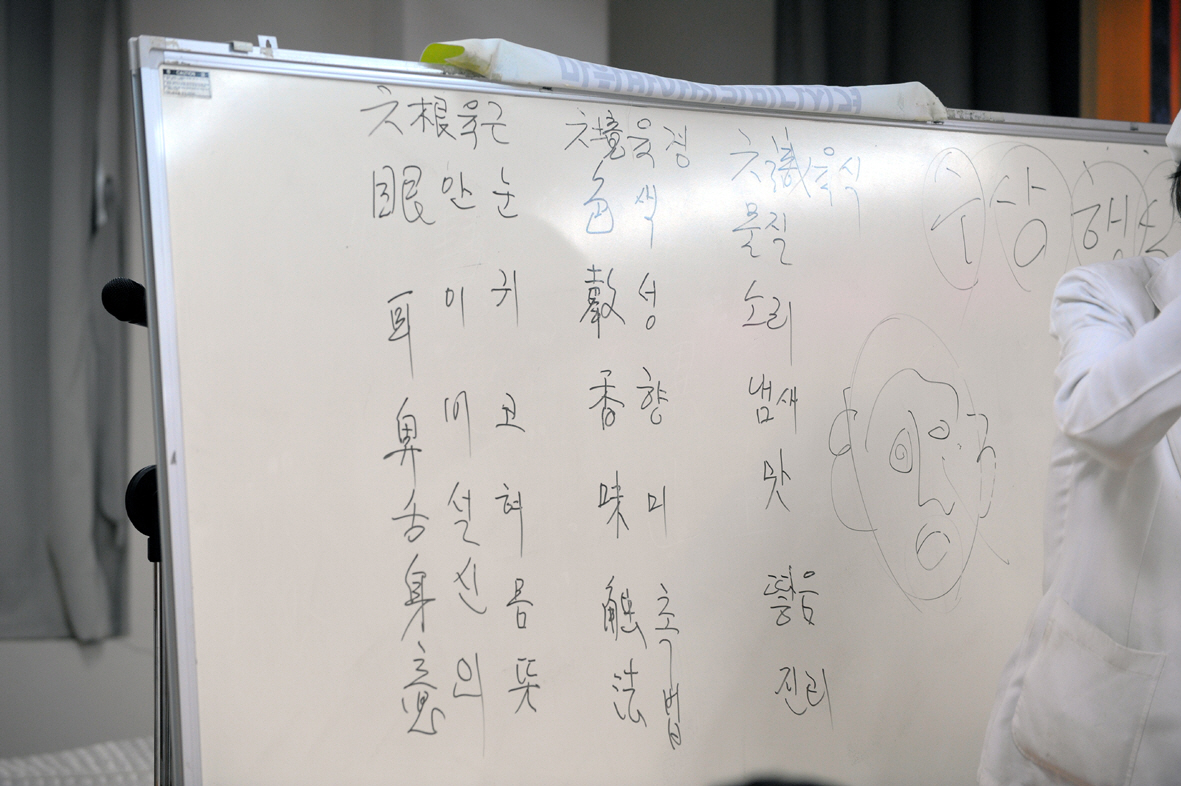 六根육근 六境육경 六識육식
眼 안 눈 色 색 물질
耳 이 귀 聲 성 소리
鼻 비 코 香 향 냄새
舌 설 혀 味 미 맛
身 신 몸 触 촉 떻음
意 의 뜻 法 법 진리
수 상 행
CAUTION